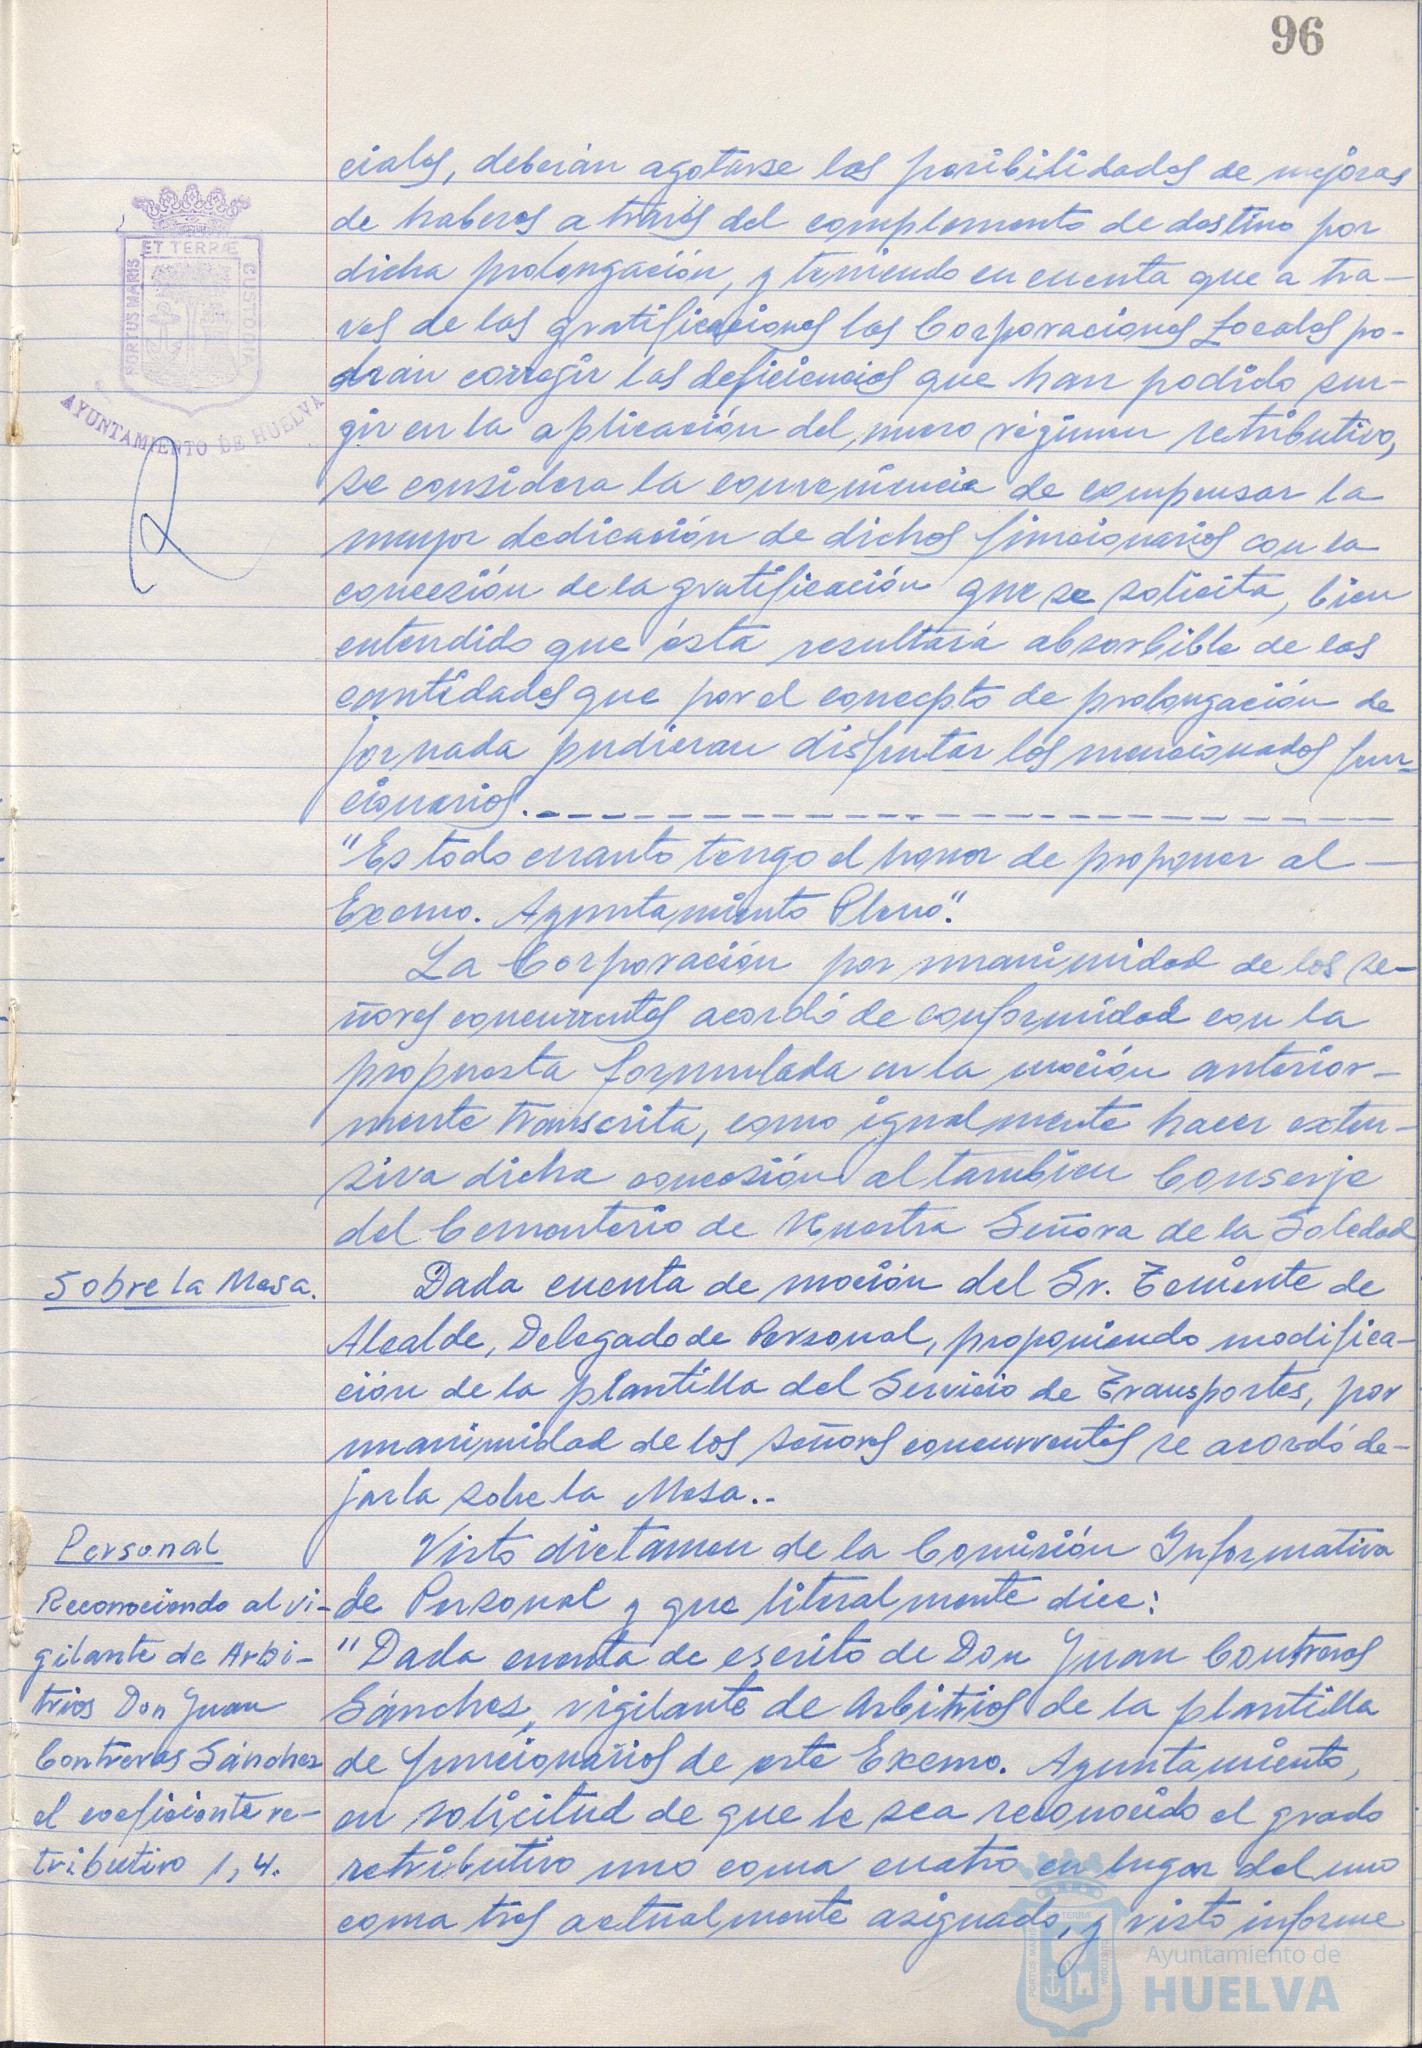 96
ciales, deberán agotarse las posibilidades de mejoras
de haberes a través del complemento de destino por
dicha prolongación, y teniendo en cuenta que a tra-
ves de las gratificaciones las Corporaciones Locales po-
drán corregir las deficiencias que han podido sur-
gir en la aplicación del nuevo régimen retributivo,
se considera la conveniencia de compensar la
mayor dedicación de dichos funcionarios con la
concesión de la gratificación que se solicita, bien
entendido que ésta resultará absorbible de las
cantidades que por el concepto de prolongación de
jornada pudieran disfrutar los mencionados fun-
cionarios.
"Es todo cuanto tengo el honor de proponer al
Excmo. Ayuntamiento Pleno".
La Corporación por unanimidad de los se-
ñores concurrentes acordó de conformidad con la
propuesta formulada en la moción anterior-
mente transcrita, como igualmente hacer exten-
siva dicha concesión al tambien Conserje
del Cementerio de Nuestra Señora de la Soledad
Sobre la Mesa.
Dada cuenta de moción del Sr. Teniente de
Alcalde, Delegado de Personal, proponiendo modifica-
ción de la plantilla del Servicio de Transportes, por
unanimidad de los señores concurrentes se acordó de-
jarla sobre la Mesa.
Personal
Reconociendo al vi-
gilante de Arbi-
trios Don Juan
Contreras Sánchez
el coeficiente re-
tributivo 1,4.
Visto dictamen de la Comisión Informativa
de Personal y que literalmente dice:
"Dada cuenta de escrito de Don Juan Contreras
Sánchez, vigilante de Arbitrios de la plantilla
de funcionarios de este Excmo. Ayuntamiento,
en solicitud de que le sea reconocido el grado
retributivo uno coma cuatro en lugar del uno
coma tres actualmente asignado, y visto informe
PORTUS MARIS ET TERRÆ CUSTODIA
AYUNTAMIENTO DE HUELVA
Ayuntamiento de
HUELVA